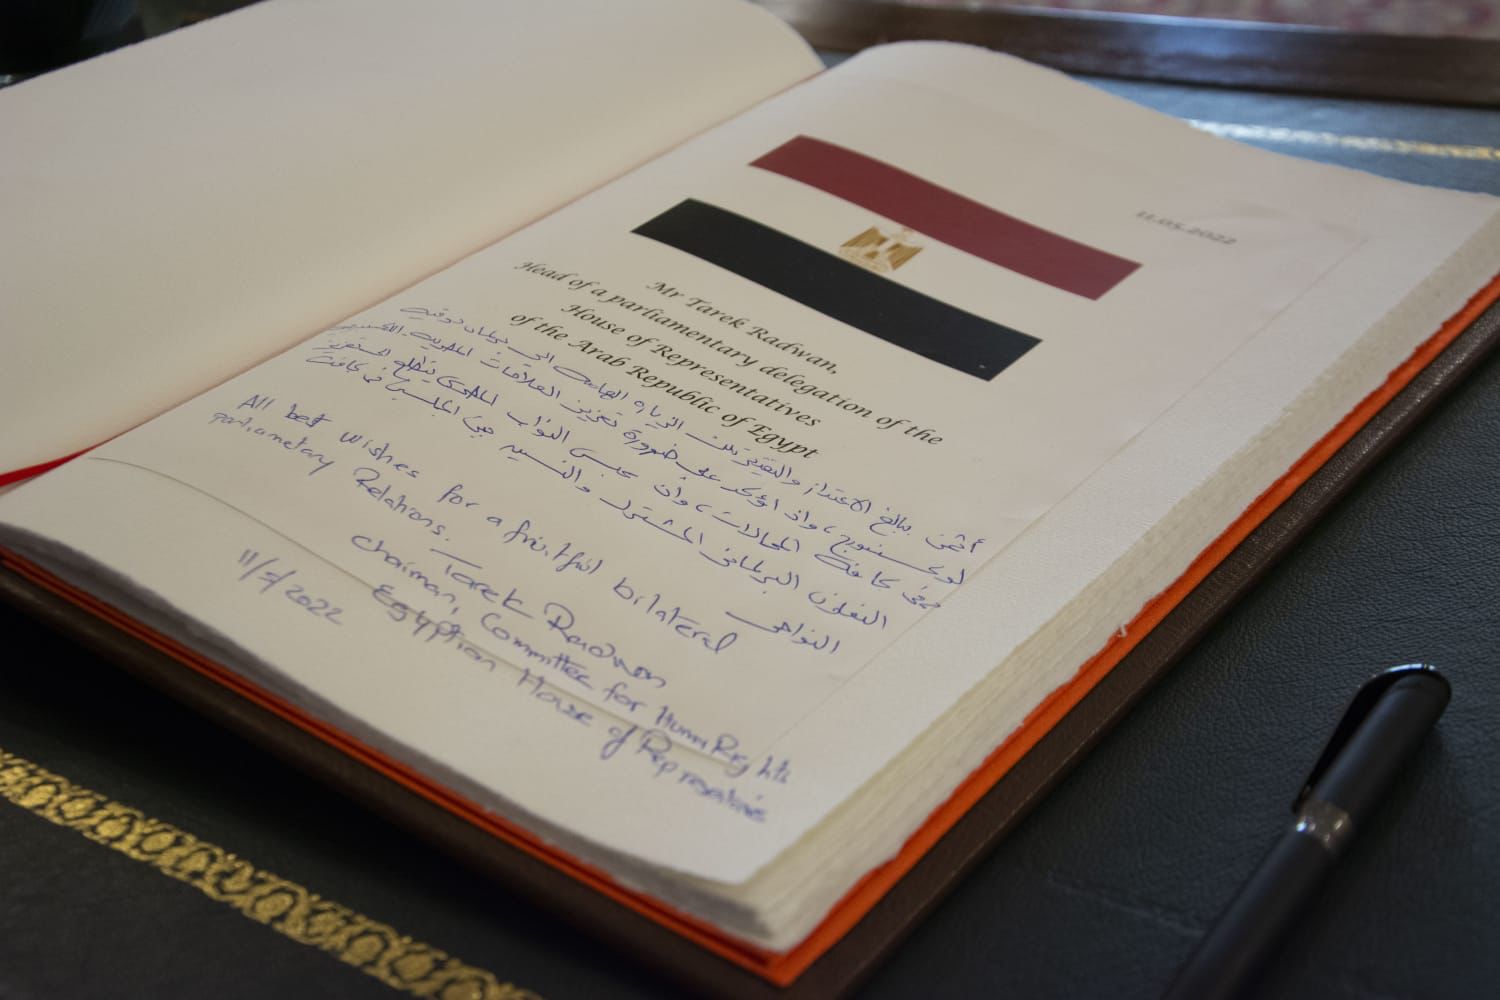 11.05.2022
Mr Tarek Radwan,
Head of a parliamentary delegation of the
House of Representatives
of the Arab Republic of Egypt
أثمن ببالغ الاعتزاز والتقدير تلك الزيارة الهامة إلى برلمان دوقية
لوكسمبورج، وإذ أؤكد على ضرورة تعزيز العلاقات المصرية
فى كافة المجالات، وأن مجلس النواب المصرى يتطلع لتعزيز
التعاون البرلمانى المشترك والتنسيق بين المجلسين فى كافة
النواحى
All best wishes for a fruitful bilateral
parliametary Relations.
Tarek Radwan
chairman, Committee for Humn Rights
Egyptian House of Represetatives
11/5/2022